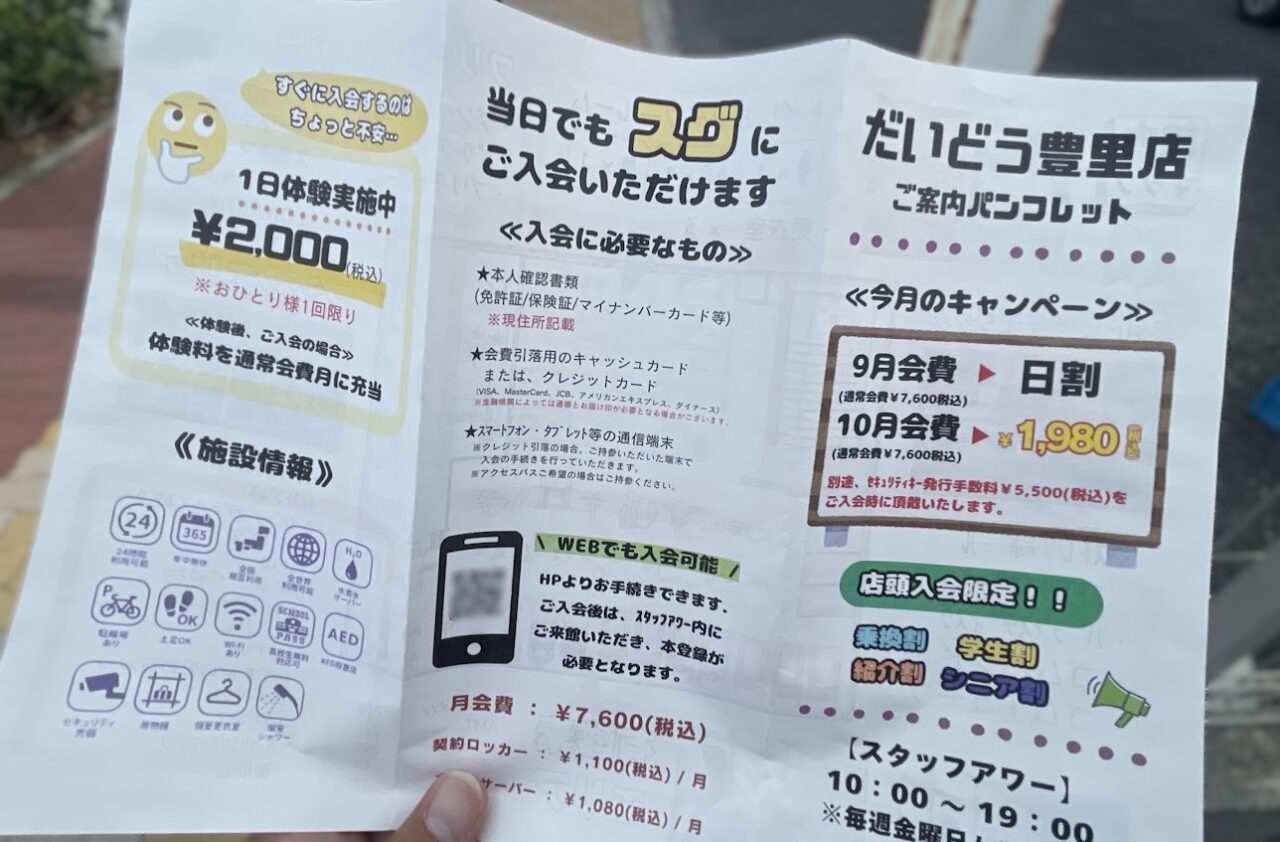 すぐに入会するのは
ちょっと不安…
1日体験実施中
¥2,000(税込)
※おひとり様1回限り
≪体験後、ご入会の場合≫
体験料を通常会費月に充当
≪施設情報≫
24
24時間
利用可能
365
年中無休
全国
相互利用
全世界
利用可能
H₂O
水素水
サーバー
P
駐輪場
あり
OK
土足OK
Wi-Fi
あり
SCHOOL
PASS
高校生無料
対応可
AED
AED設置店
セキュリティ
完備
着物棚
個室更衣室
個室
シャワー
当日でもスグに
ご入会いただけます
≪入会に必要なもの≫
★本人確認書類
(免許証/保険証/マイナンバーカード等)
※現住所記載
★会費引落用のキャッシュカード
または、クレジットカード
(VISA、MasterCard、JCB、アメリカンエキスプレス、ダイナース)
※金融機関によっては通帳とお届け印が必要となる場合がございます。
★スマートフォン・タブレット等の通信端末
※クレジット引落の場合、ご持参いただいた端末で
入会の手続きを行っていただきます。
※アクセスパスご希望の場合はご持参ください。
WEBでも入会可能
HPよりお手続きできます。
ご入会後は、スタッフアワー内に
ご来館いただき、本登録が
必要となります。
月会費 : ¥7,600(税込)
契約ロッカー : ¥1,100(税込) / 月
サーバー : ¥1,080(税込) / 月
だいどう豊里店
ご案内パンフレット
≪今月のキャンペーン≫
9月会費 ▶ 日割
(通常会費¥7,600税込)
10月会費 ▶ ¥1,980税込
(通常会費¥7,600税込)
別途、セキュリティキー発行手数料¥5,500(税込)を
ご入会時に頂戴いたします。
店頭入会限定！！
乗換割 学生割
紹介割 シニア割
【スタッフアワー】
10：00 〜 19：00
※毎週金曜日